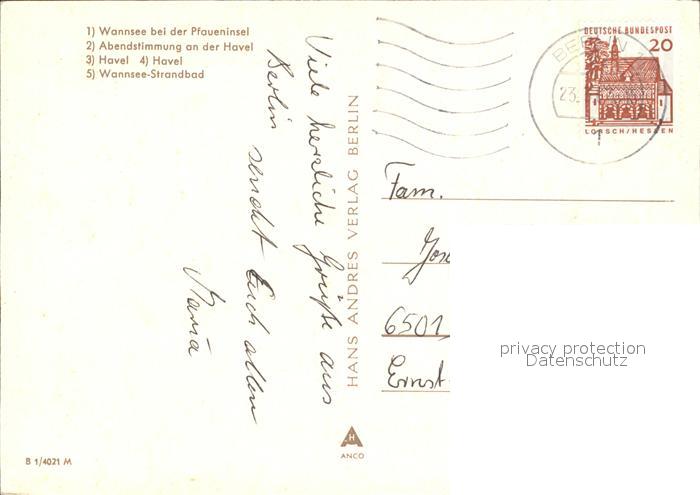 1) Wannsee bei der Pfaueninsel
2) Abendstimmung an der Havel
3) Havel 4) Havel
5) Wannsee-Strandbad
Viele herzliche Grüße aus
Berlin sendet Euch allen
Maria
HANS ANDRES VERLAG BERLIN
DEUTSCHE BUNDESPOST
20
LORSCH/HESSEN
BERLIN
23.
Fam.
6501
Ernst-
privacy protection
Datenschutz
H
ANCO
B 1/4021 M